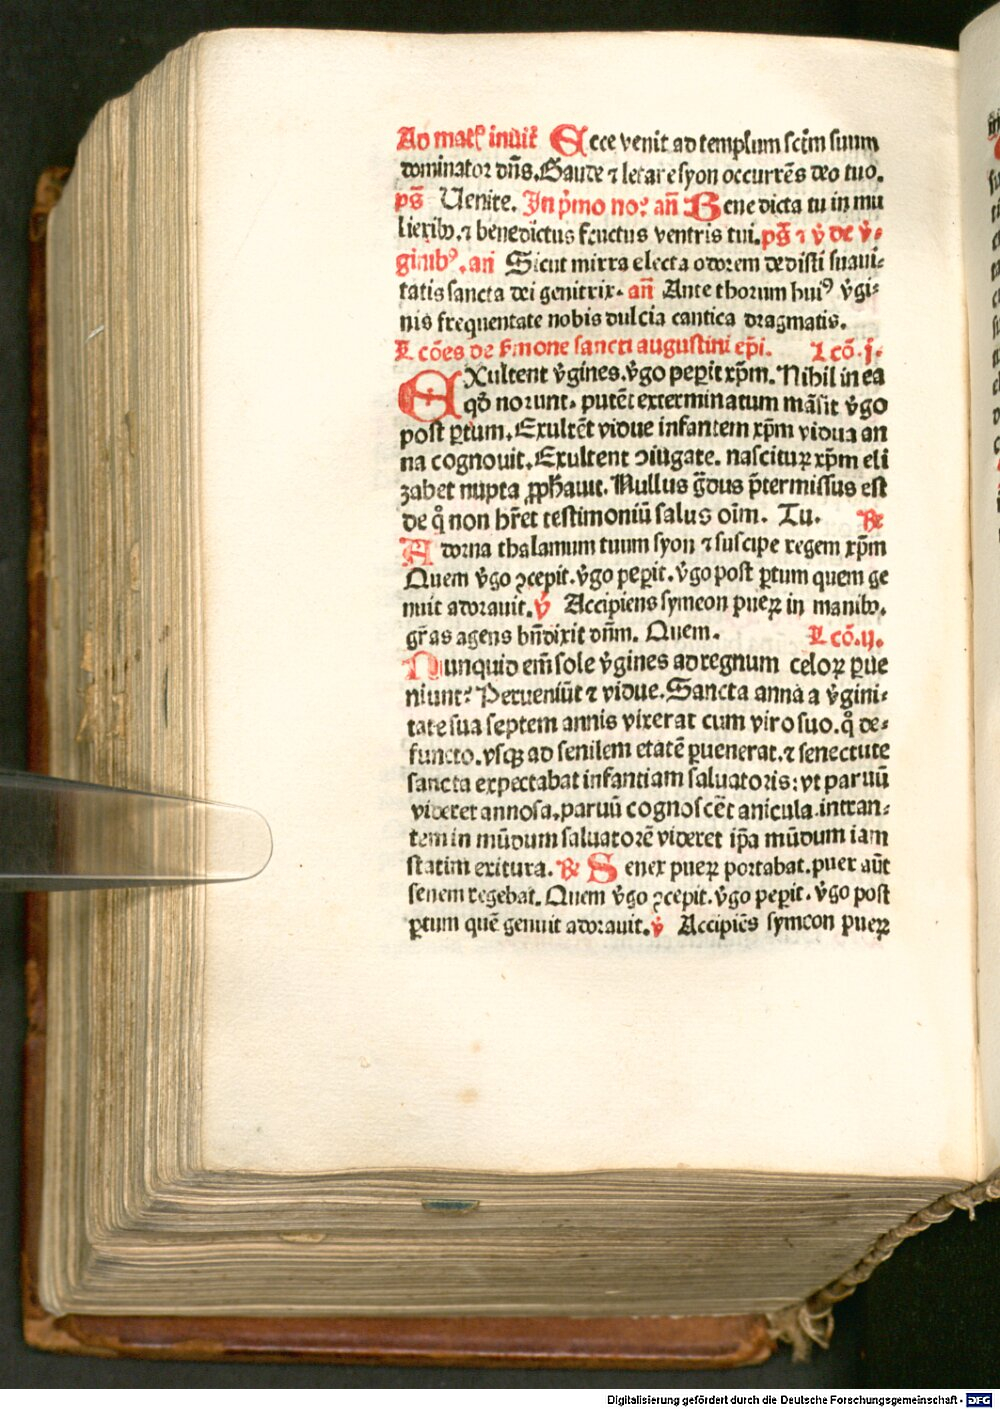 Ad matꝭ inuit̉ Ecce venit ad templum sctm̄ suum
dominator dn̄s. Gaude ⁊ letare syon occurrēs deo tuo.
ps̄ Uenite. In p̉mo noꝭ an̄ Benedicta tu in mu
lieribꝰ. ⁊ benedictus fructus ventris tui. ps̄ ⁊ v̉ de v̉-
ginibꝰ. an̄ Sicut mirra electa odorem dedisti suaui-
tatis sancta dei genitrix. an̄ Ante thorum huiꝰ v̉gi-
nis frequentate nobis dulcia cantica dragmatis.
Lcōes de s̉mone sancti augustini ep̄i. Lcō. j.
EXultent v̉gines. v̉go peꝑit xp̄m. Nihil in ea
qđ norunt. putēt exterminatum māsit v̉go
post ꝑtum. Exultēt vidue infantem xp̄m vidua an
na cognouit. Exultent ꝯiugate. nasciturꝝ xp̄m eli
zabet nupta ꝓph̄auit. Nullus g̉dus p̄termissus est
de q̊ non hr̄et testimoniū salus oīm. Tu. ℞
Adorna thalamum tuum syon ⁊ suscipe regem xp̄m
Quem v̉go ꝯcepit. v̉go peꝑit. v̉go post ꝑtum quem ge
nuit adorauit. ℣ Accipiens symeon pueꝝ in manibꝰ.
gr̄as agens bn̄dixit dn̄m. Quem. Lcō. ij.
Nunquid em̄ sole v̉gines ad regnum celoꝝ ꝑue
niunt? Perueniūt ⁊ vidue. Sancta anna a v̉gini-
tate sua septem annis vixerat cum viro suo. q̊ de-
functo. vsqꝫ ad senilem etatē ꝑuenerat. ⁊ senectute
sancta expectabat infantiam saluatoris: vt paruū
videret annosa. paruū cognoscēt anicula. intran-
tem in mūdum saluatorē videret ip̄a mūdum iam
statim exitura. ℞ Senex pueꝝ portabat. puer aūt
senem regebat. Quem v̉go ꝯcepit. v̉go peꝑit. v̉go post
ꝑtum quē genuit adorauit. ℣ Accipiēs symeon pueꝝ
Digitalisierung gefördert durch die Deutsche Forschungsgemeinschaft - DFG